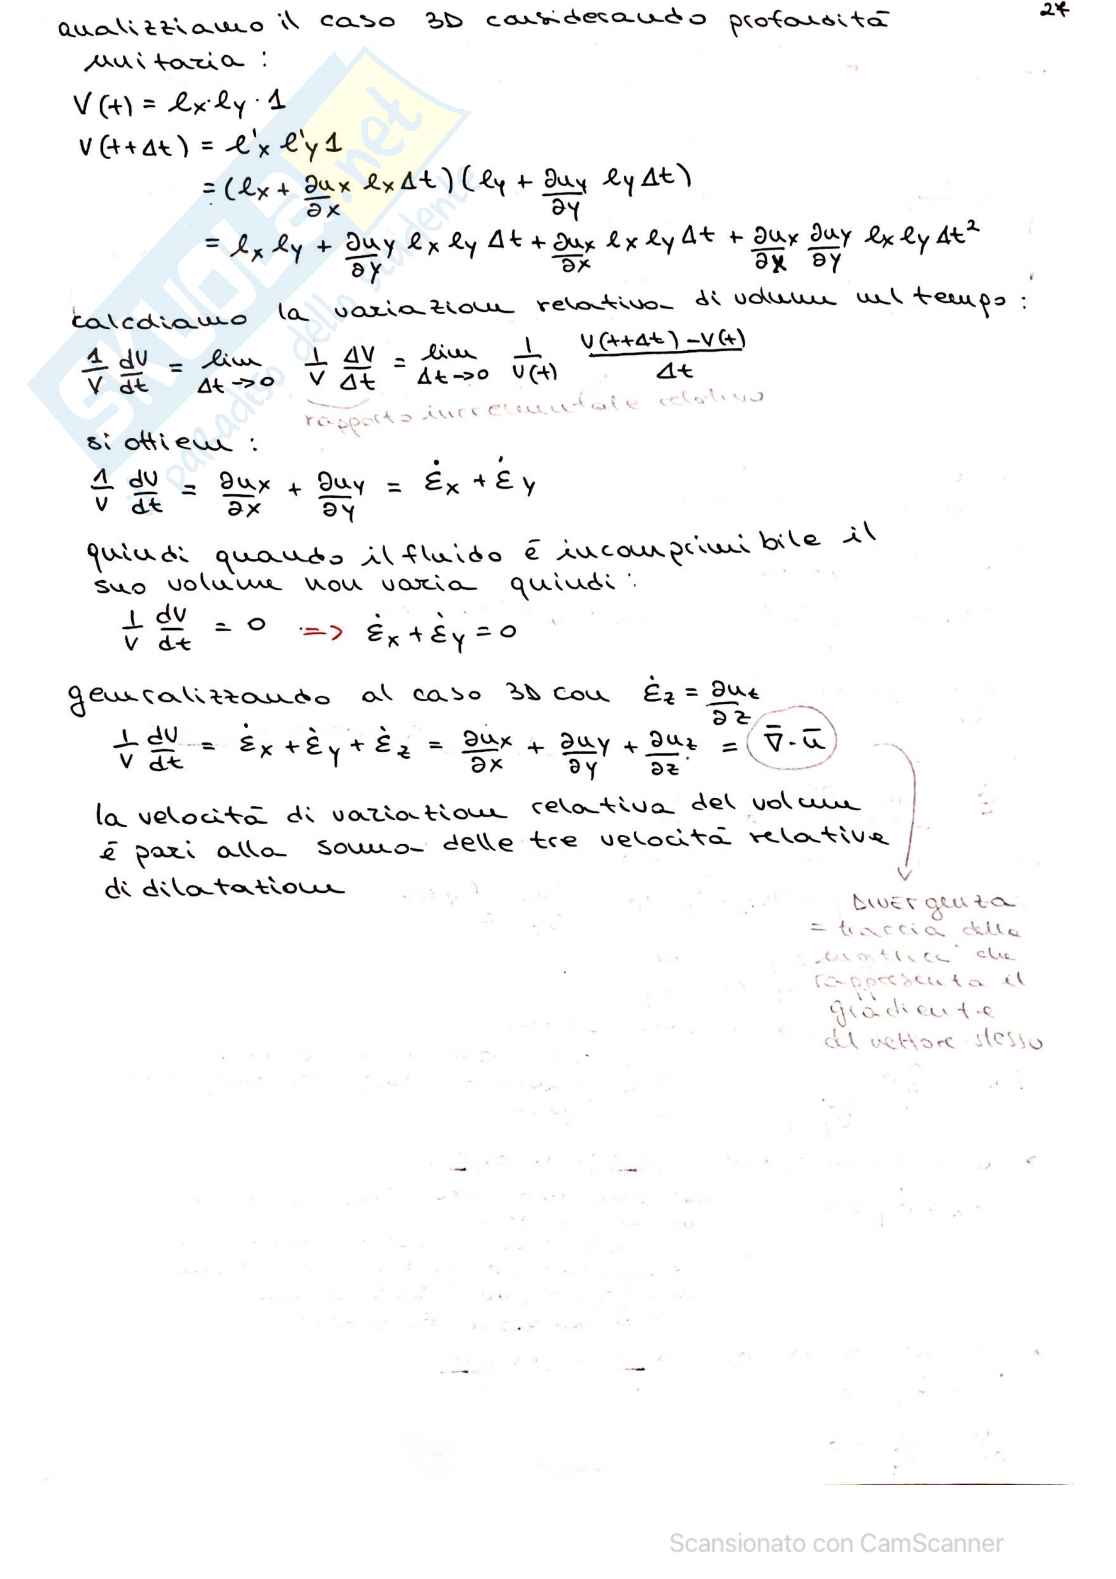 analizziamo il caso 3D considerando profondità
27
unitaria :
V(t) = lx·ly·1
V(t+Δt) = l'x l'y 1
= (lx + ∂ux/∂x lx Δt)(ly + ∂uy/∂y ly Δt)
= lx ly + ∂uy/∂y lx ly Δt + ∂ux/∂x lx ly Δt + ∂ux/∂x ∂uy/∂y lx ly Δt²
calcoliamo la variazione relativa di volume nel tempo :
1/V dV/dt = lim Δt->0 1/V ΔV/Δt = lim Δt->0 1/V(t) V(t+Δt)-V(t)/Δt
rapporto incrementale relativo
si ottiene :
1/V dV/dt = ∂ux/∂x + ∂uy/∂y = ε̇x + ε̇y
quindi quando il fluido è incomprimibile il
suo volume non varia quindi:
1/V dV/dt = 0 => ε̇x + ε̇y = 0
generalizzando al caso 3D con ε̇z = ∂uz/∂z
1/V dV/dt = ε̇x + ε̇y + ε̇z = ∂ux/∂x + ∂uy/∂y + ∂uz/∂z = ∇̄·ū
la velocità di variazione relativa del volume
è pari alla somma delle tre velocità relative
di dilatazione
Divergenza
= traccia della
matrice che
rappresenta il
gradiente
del vettore stesso
SKUOLA.net
paradiso dello studente
Scansionato con CamScanner